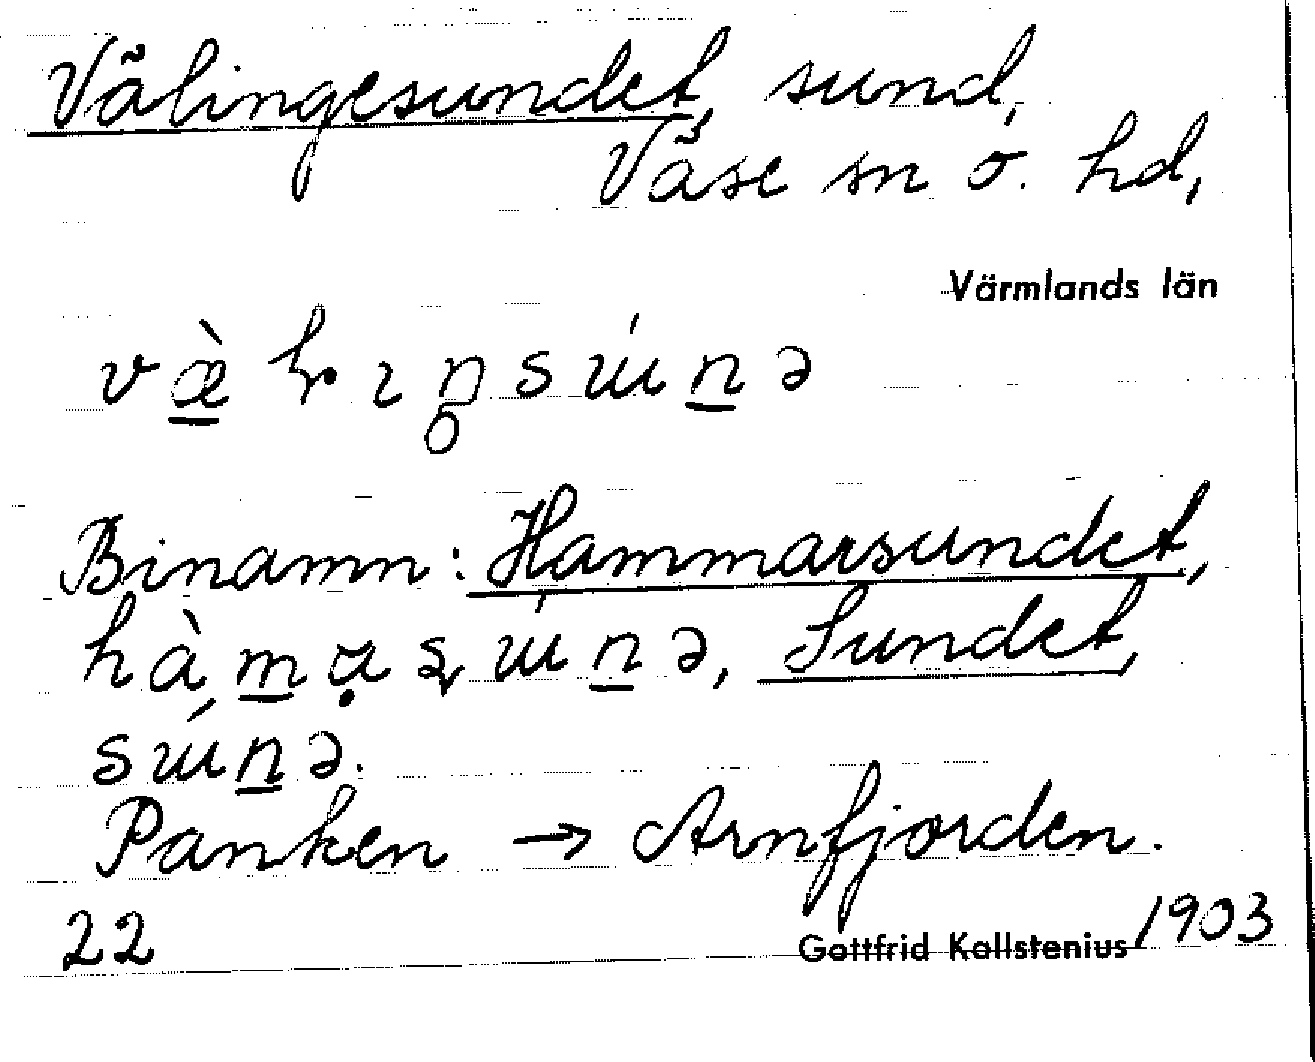 Välingesundet, sund,
Väse sn o. hd,
Värmlands län
Binamn: Hammarsundet,
Sundet,
Panken → Arnfjorden.
22
Gottfrid Kallstenius 1903